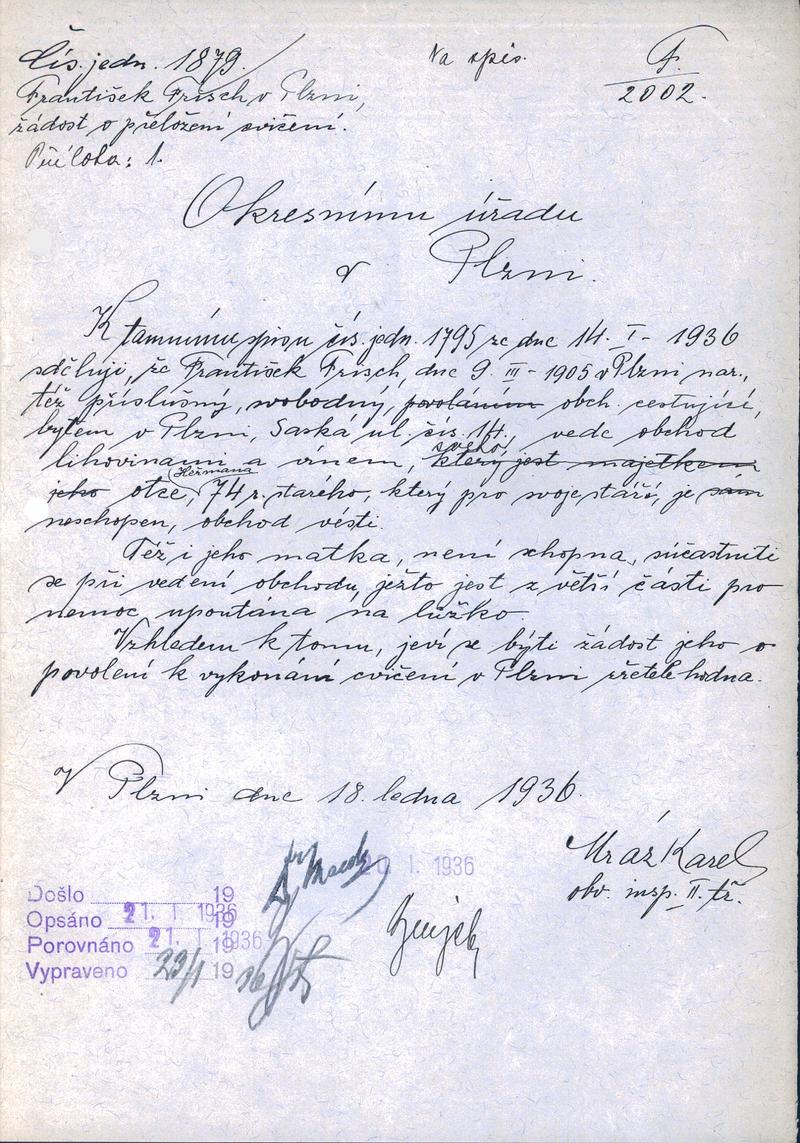 Čís. jedn. 1879.
Na spis.
F.
2002.
František Frisch, v Plzni,
žádost o přeložení cvičení.
Příloha: 1.
Okresnímu úřadu
v Plzni.
K tamnímu spisu čís. jedn. 1795 ze dne 14. I - 1936
sděluji, že František Frisch, dne 9. III - 1905 v Plzni nar.,
též příslušný, svobodný, povoláním obch. cestující,
bytem v Plzni, Saská ul. čís. 14, vede obchod
lihovinami a vínem, který jest majetkem svého
jeho otce, Heřmana 74 r. starého, který pro svoje stáří, je sám
neschopen, obchod vésti.
Též i jeho matka, není schopna, súčastniti
se při vedení obchodu, ježto jest z větší části pro
nemoc upoutána na lůžko.
Vzhledem k tomu, jeví se býti žádost jeho o
povolení k vykonání cvičení v Plzni zřetele hodna.
V Plzni dne 18. ledna 1936.
Mráz Karel
obv. insp. II. tř.
20. I. 1936
Došlo 19
Opsáno 21. I. 1936 19
Porovnáno 21. I. 1936 19
Vypraveno 23/1 19 36